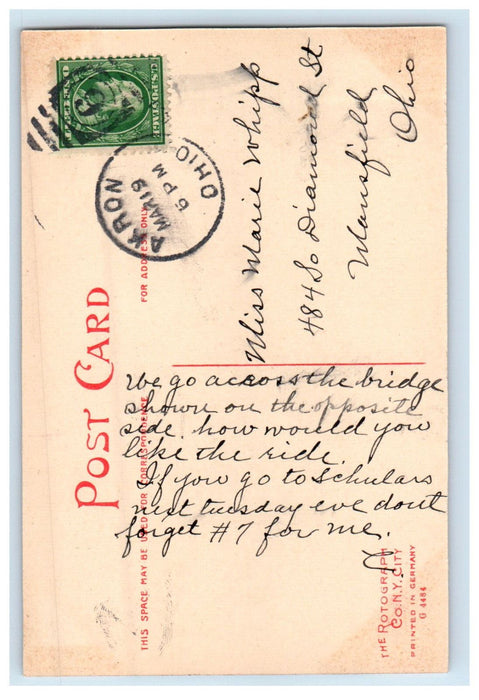 AKRON
MAR 19
6 PM
OHIO
POST CARD
FOR ADDRESS ONLY
THIS SPACE MAY BE USED FOR CORRESPONDENCE
Miss Marie Whipp
484 So Diamond St
Mansfield
Ohio
We go across the bridge
shown on the opposite
side. how would you
like the ride.
If you go to Schulars
next tuesday eve dont
forget #7 for me.
THE ROTOGRAPH
CO. N.Y. CITY
PRINTED IN GERMANY
G 4484